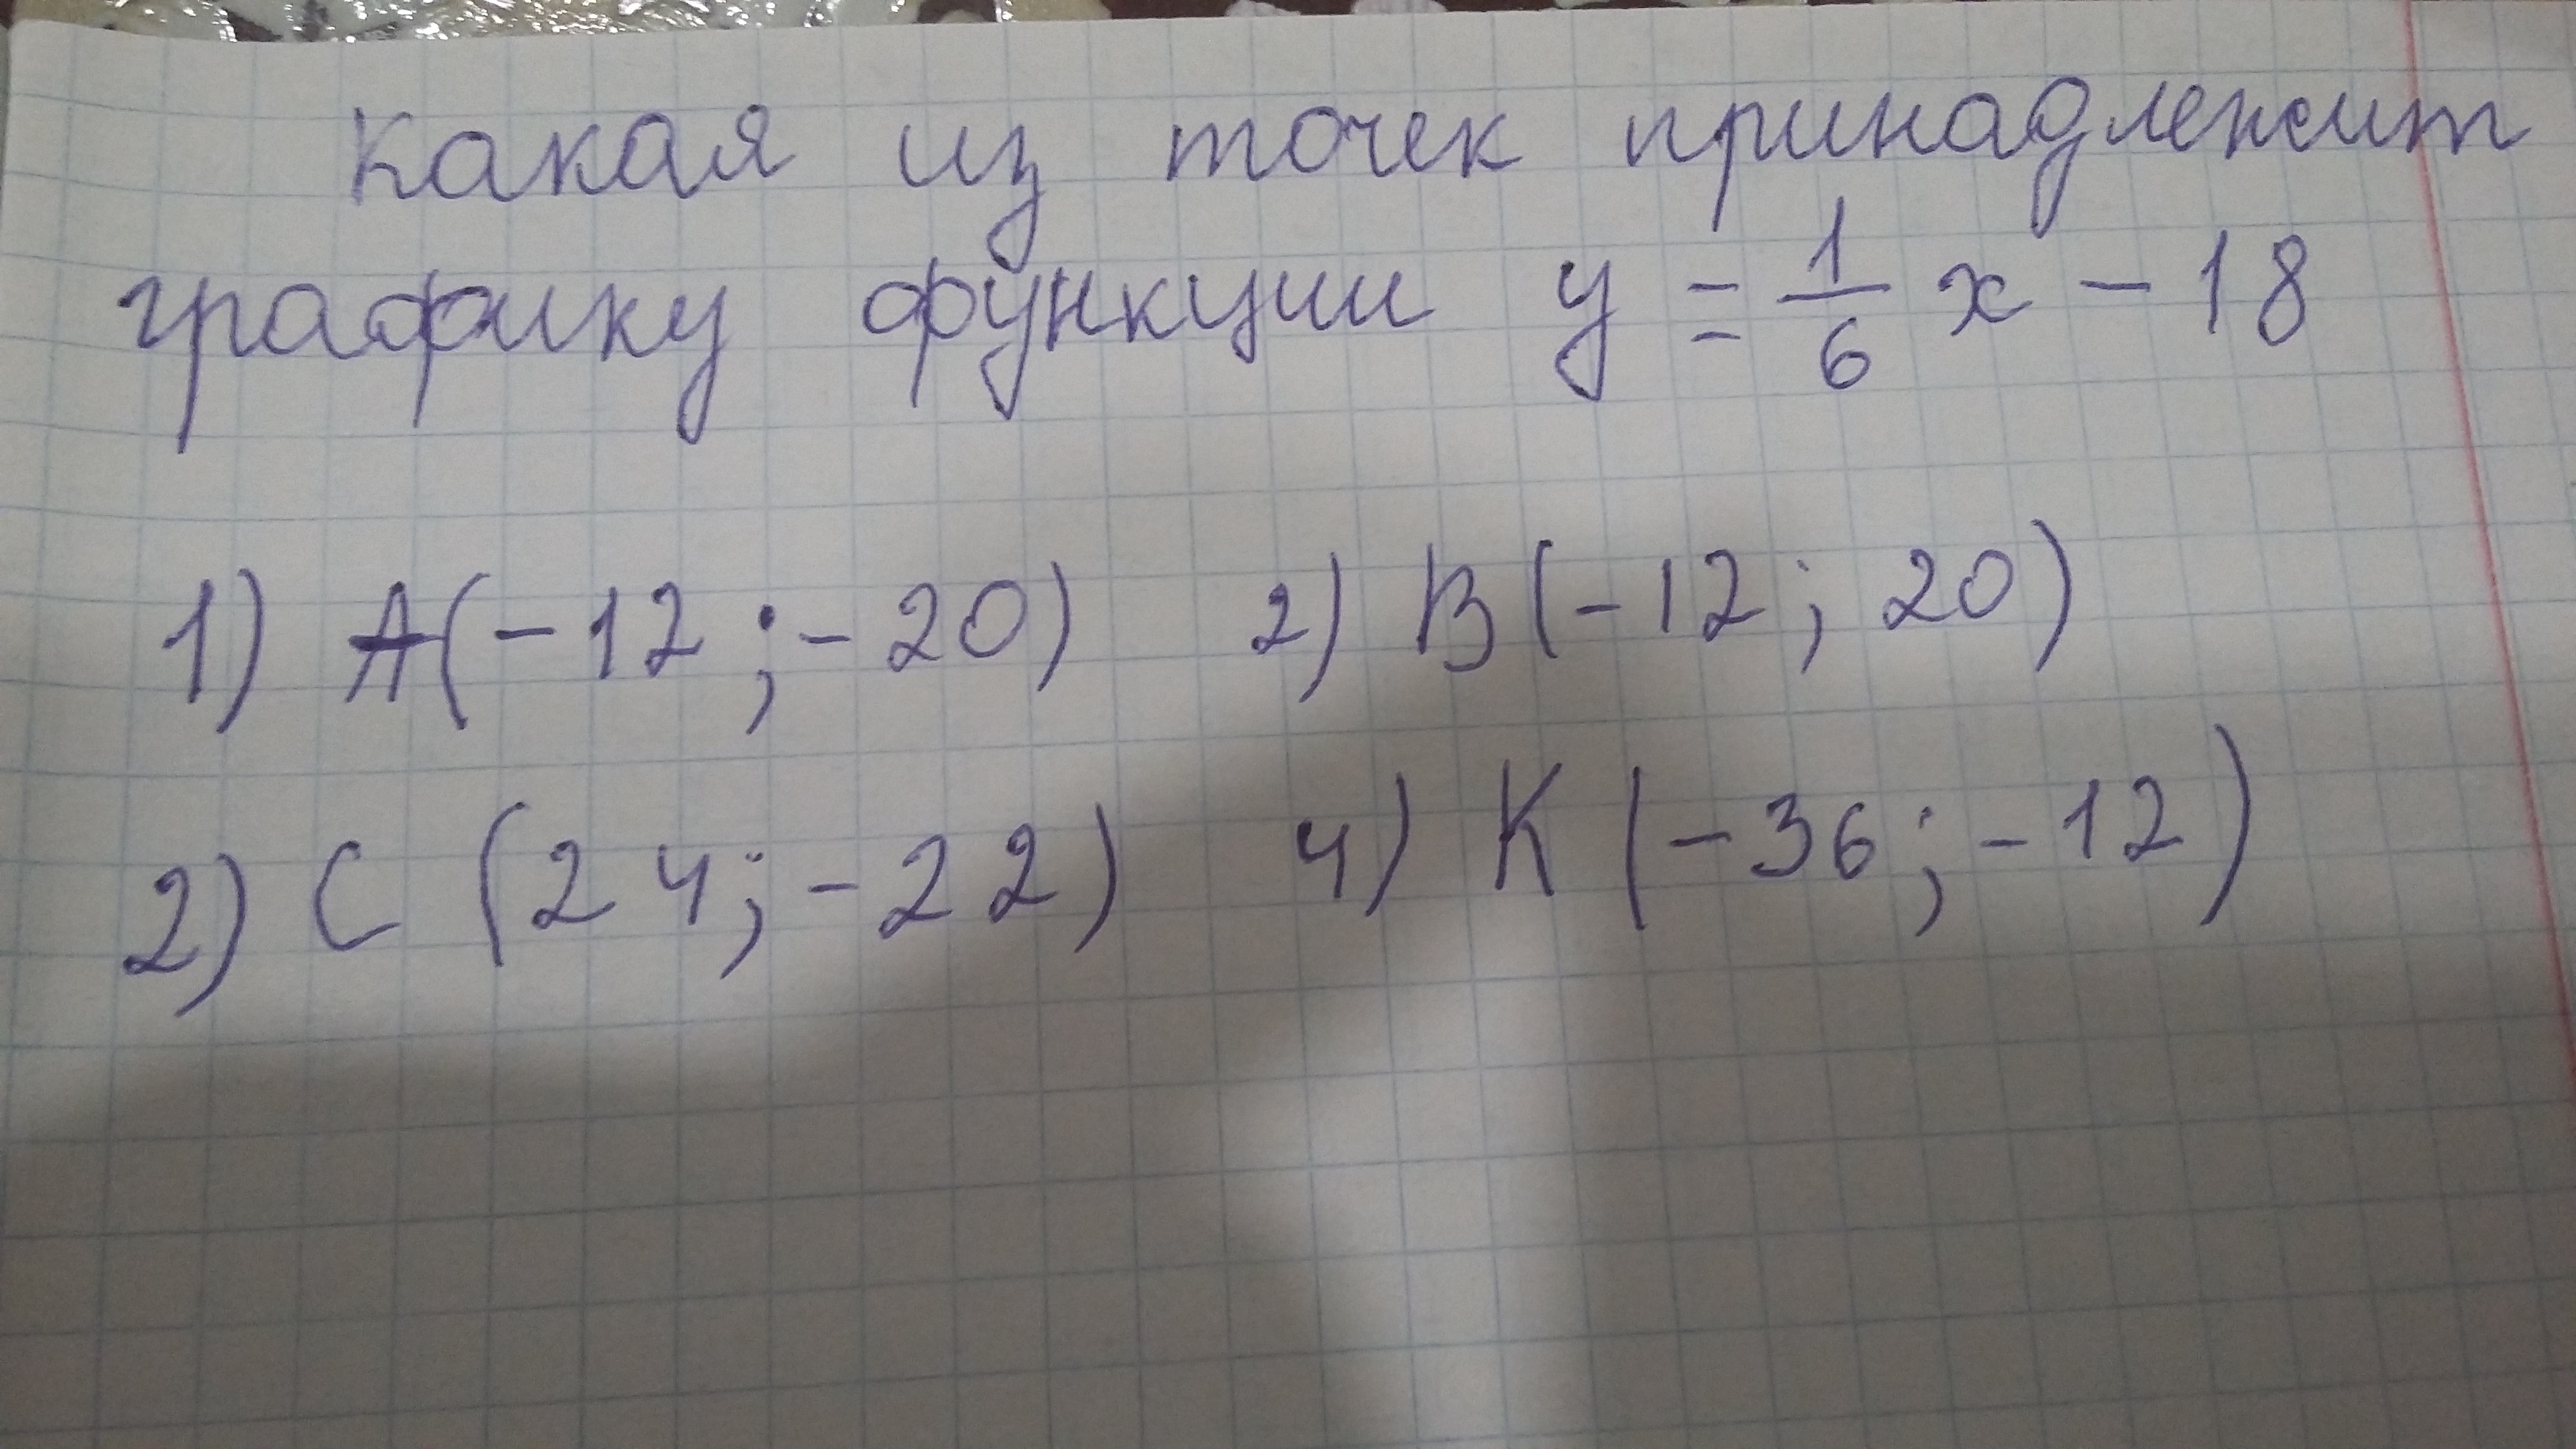 Какая из точек принадлежит
графику функции y = 1/6 x - 18
1) A(-12; -20) 2) B(-12; 20)
2) C (24; -22) 4) K (-36; -12)